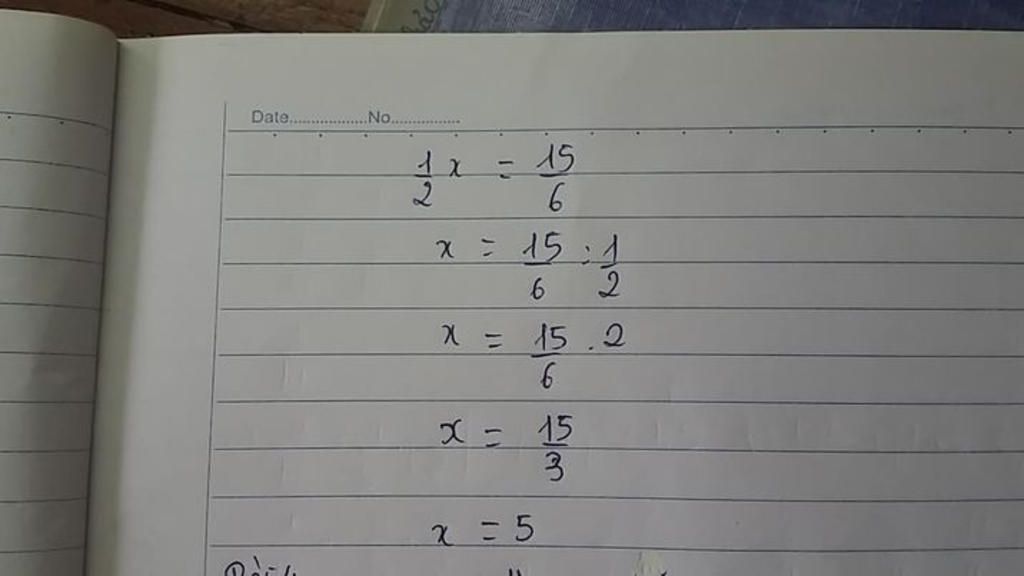 Date..................No................
1/2 x = 15/6
x = 15/6 : 1/2
x = 15/6 . 2
x = 15/3
x = 5